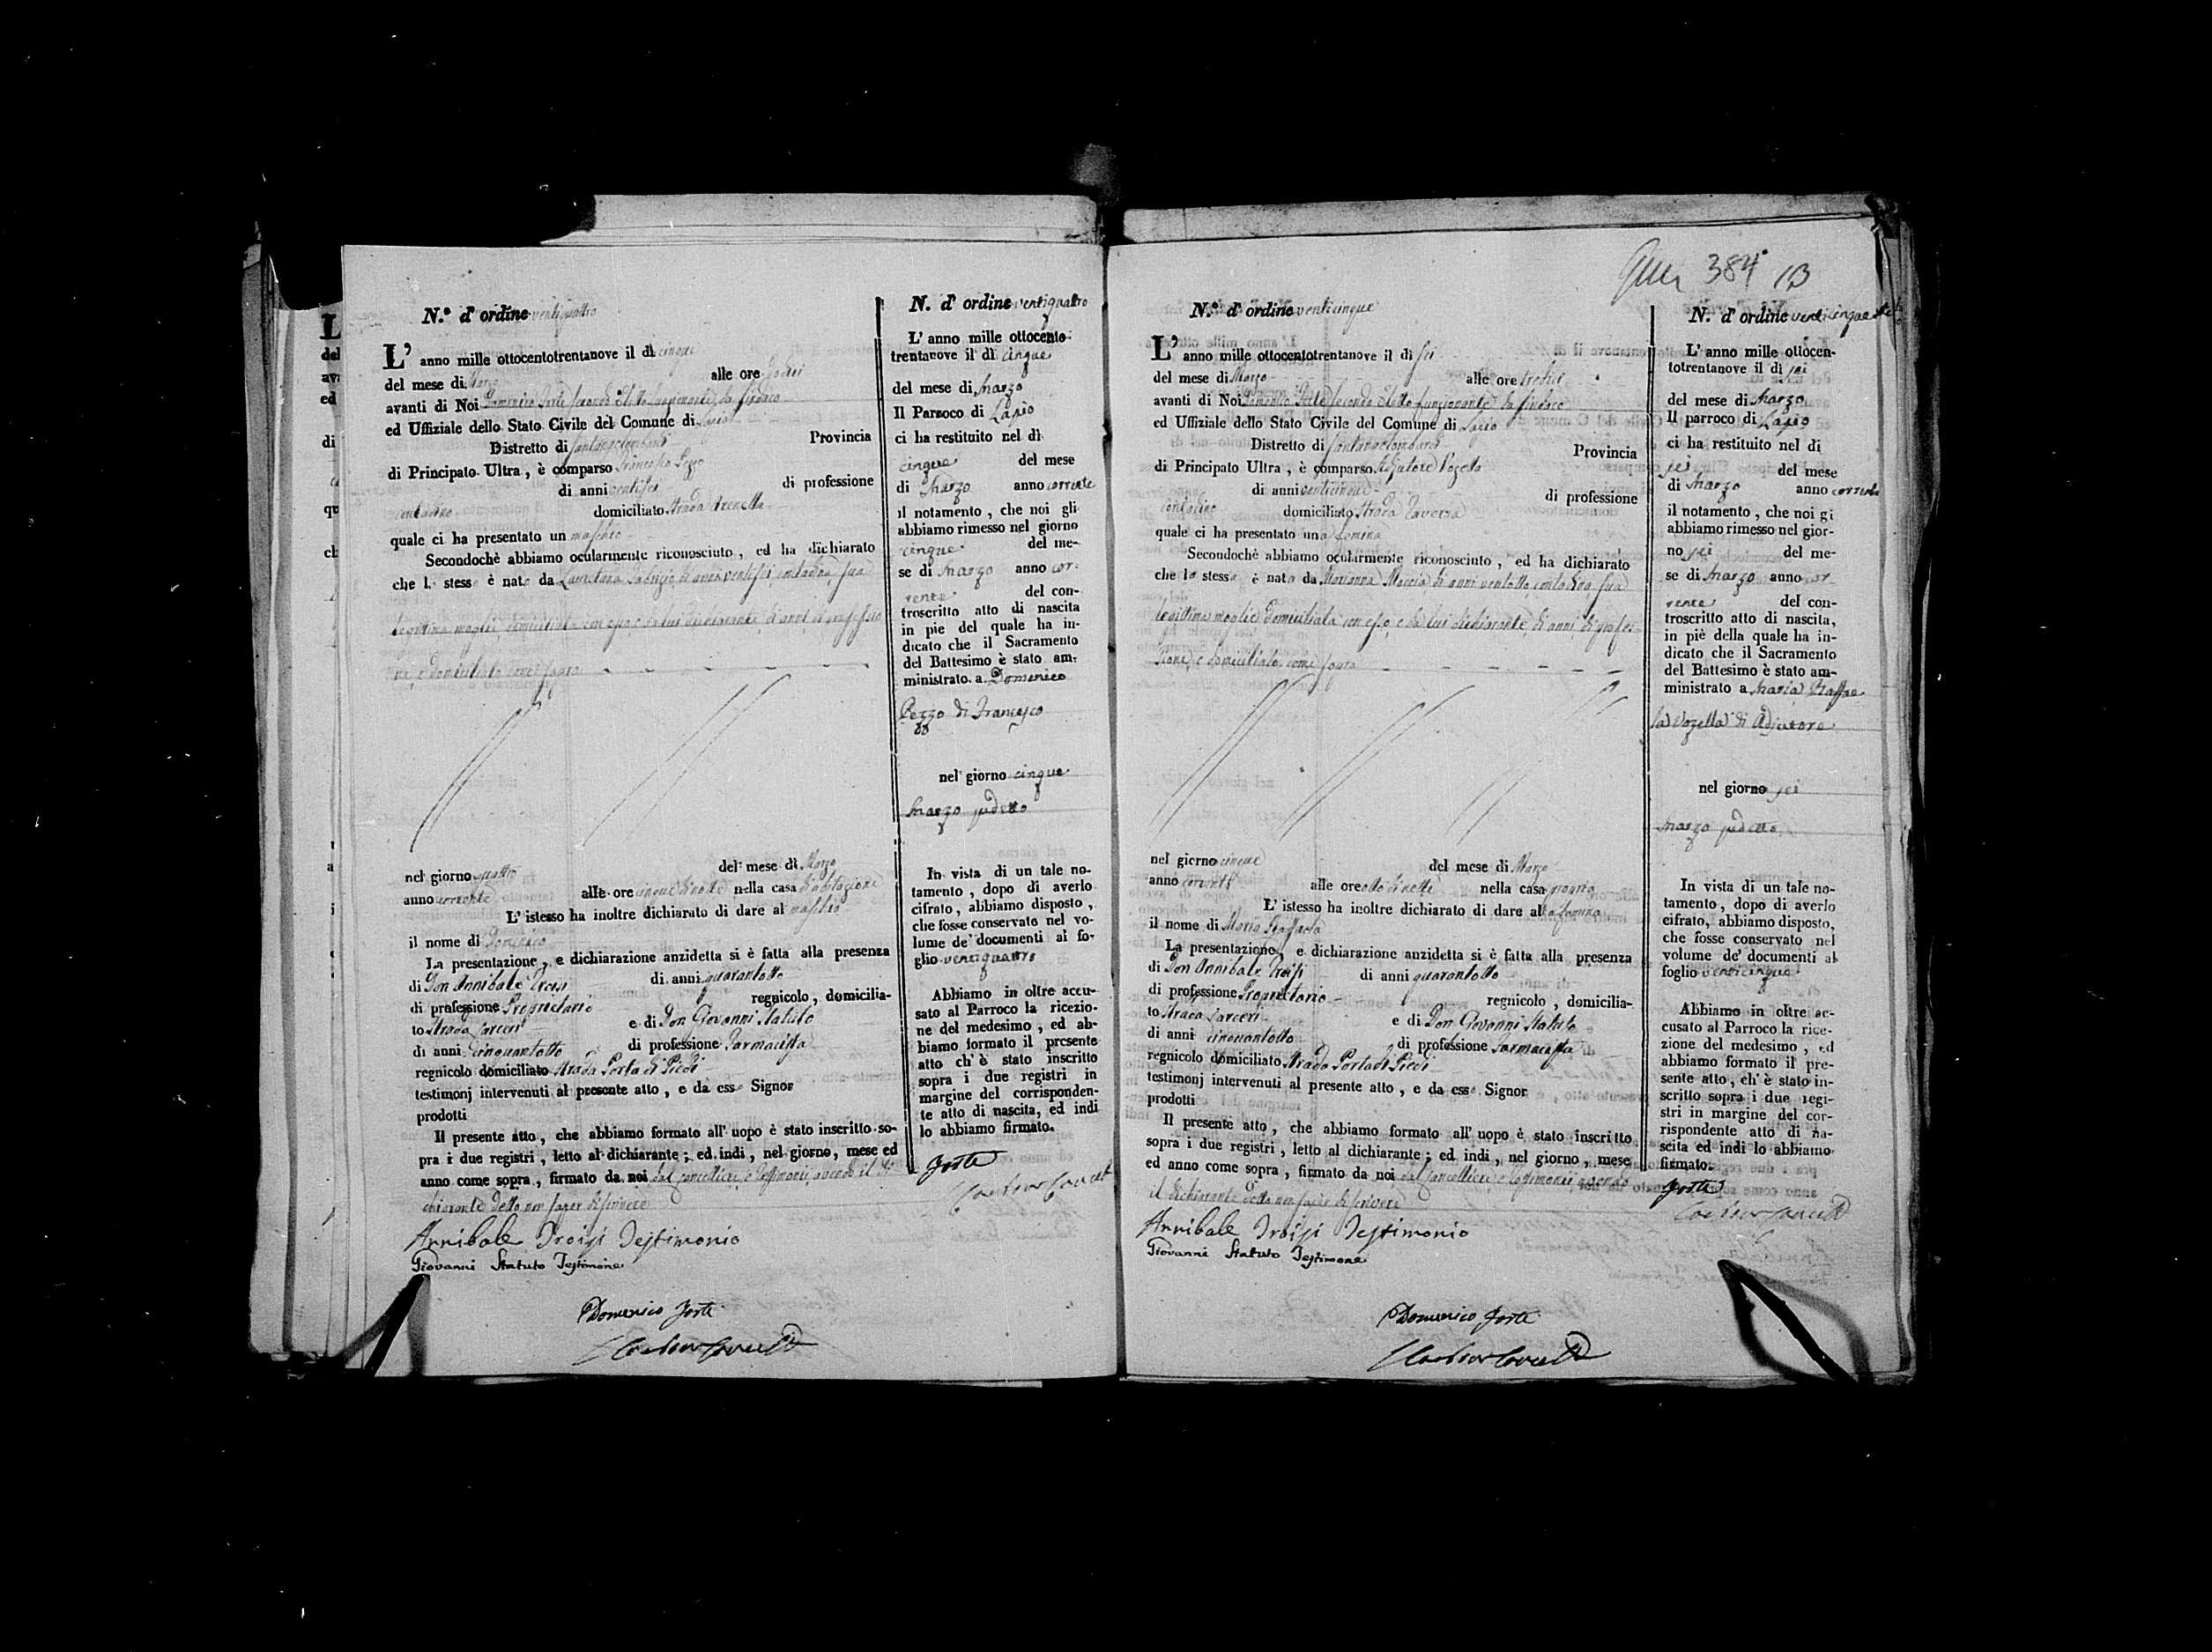 N.º d' ordine ventiquattro
L' anno mille ottocentotrentanove il dì cinque
del mese di Marzo alle ore
avanti di Noi Domenico Forte secondo Eletto funzionante da Sindaco
ed Uffiziale dello Stato Civile del Comune di Lapio
Distretto di Santangelolombardi Provincia
di Principato Ultra, è comparso Francesco Pezzo
di anni ventisei di professione
contadino domiciliato Strada
quale ci ha presentato un maschio
Secondochè abbiamo ocularmente riconosciuto, ed ha dichiarato
che lo stesso è nato da di anni ventisei contadina sua
legittima moglie domiciliata con esso e da lui dichiarante di anni di professio
ne, e domiciliato come sopra
nel giorno quattro del mese di Marzo
anno corrente alle ore cinque di notte nella casa d'abitazione
L' istesso ha inoltre dichiarato di dare al maschio
il nome di Domenico
La presentazione, e dichiarazione anzidetta si è fatta alla presenza
di Don Annibale Troisi di anni quarantotto
di professione Proprietario regnicolo, domicilia-
to Strada Carceri e di Don Giovanni Statuto
di anni cinquantotto di professione Farmacista
regnicolo domiciliato Strada Porta di Piedi
testimonj intervenuti al presente atto, e da esso Signor
prodotti
Il presente atto, che abbiamo formato all' uopo è stato inscritto so-
pra i due registri, letto al dichiarante; ed indi, nel giorno, mese ed
anno come sopra, firmato da noi dal Cancelliere, e testimonii avendo il di
chiarante detto non saper di scrivere
Annibale Troisi Testimonio
Giovanni Statuto Testimone
Domenico Forte
N. d' ordine ventiquatro
L' anno mille ottocento
trentanove il dì cinque
del mese di Marzo
Il Parroco di Lapio
ci ha restituito nel dì
cinque del mese
di Marzo anno corrente
il notamento, che noi gli
abbiamo rimesso nel giorno
cinque del me-
se di Marzo anno cor-
rente del con-
troscritto atto di nascita
in piè del quale ha in-
dicato che il Sacramento
del Battesimo è stato am-
ministrato a Domenico
Pezzo di Francesco
nel giorno cinque
Marzo sudetto
In vista di un tale no-
tamento, dopo di averlo
cifrato, abbiamo disposto,
che fosse conservato nel vo-
lume de' documenti al fo-
glio ventiquattro
Abbiamo in oltre accu-
sato al Parroco la ricezio-
ne del medesimo, ed ab-
biamo formato il presente
atto ch' è stato inscritto
sopra i due registri in
margine del corrisponden-
te atto di nascita, ed indi
lo abbiamo firmato.
Forte
384 13
N.º d' ordine venticinque
L' anno mille ottocentotrentanove il dì sei
del mese di Marzo alle ore tredici
avanti di Noi Domenico Forte secondo Eletto funzionante da Sindaco
ed Uffiziale dello Stato Civile del Comune di Lapio
Distretto di Santangelolombardi Provincia
di Principato Ultra, è comparso Adjutore Vozella
di anni venticinque di professione
contadino domiciliato Strada Taverna
quale ci ha presentato una femina
Secondochè abbiamo ocularmente riconosciuto, ed ha dichiarato
che la stessa è nata da Marianna Maccia di anni ventotto contadina sua
legittima moglie domiciliata con esso, e da lui dichiarante di anni di profes
sione, e domiciliato come sopra
nel giorno cinque del mese di Marzo
anno corrente alle ore otto di notte nella casa propria
L' istesso ha inoltre dichiarato di dare alla femina
il nome di Maria Raffaela
La presentazione, e dichiarazione anzidetta si è fatta alla presenza
di Don Annibale Troisi di anni quarantotto
di professione Proprietario regnicolo, domicilia-
to Strada Carceri e di Don Giovanni Statuto
di anni cinquantotto di professione Farmacista
regnicolo domiciliato Strada Porta di Piedi
testimonj intervenuti al presente atto, e da esso Signor
prodotti
Il presente atto, che abbiamo formato all' uopo è stato inscritto
sopra i due registri, letto al dichiarante; ed indi, nel giorno, mese
ed anno come sopra, firmato da noi dal Cancelliere e testimonii avendo
il dichiarante detto non saper di scrivere
Annibale Troisi Testimonio
Giovanni Statuto Testimone
Domenico Forte
N. d' ordine venticinque
L' anno mille ottocen-
totrentanove il dì sei
del mese di Marzo
Il parroco di Lapio
ci ha restituito nel di
sei del mese
di Marzo anno corrente
il notamento, che noi gi
abbiamo rimesso nel gior-
no sei del me-
se di Marzo anno cor-
rente del con-
troscritto atto di nascita,
in piè della quale ha in-
dicato che il Sacramento
del Battesimo è stato am-
ministrato a Maria Raffae
la Vozella di Adjutore
nel giorno sei
Marzo sudetto
In vista di un tale no-
tamento, dopo di averlo
cifrato, abbiamo disposto,
che fosse conservato nel
volume de' documenti al
foglio venticinque
Abbiamo in oltre ac-
cusato al Parroco la rice-
zione del medesimo, ed
abbiamo formato il pre-
sente atto, ch' è stato in-
scritto sopra i due regi-
stri in margine del cor-
rispondente atto di na-
scita ed indi lo abbiamo
firmato.
Forte